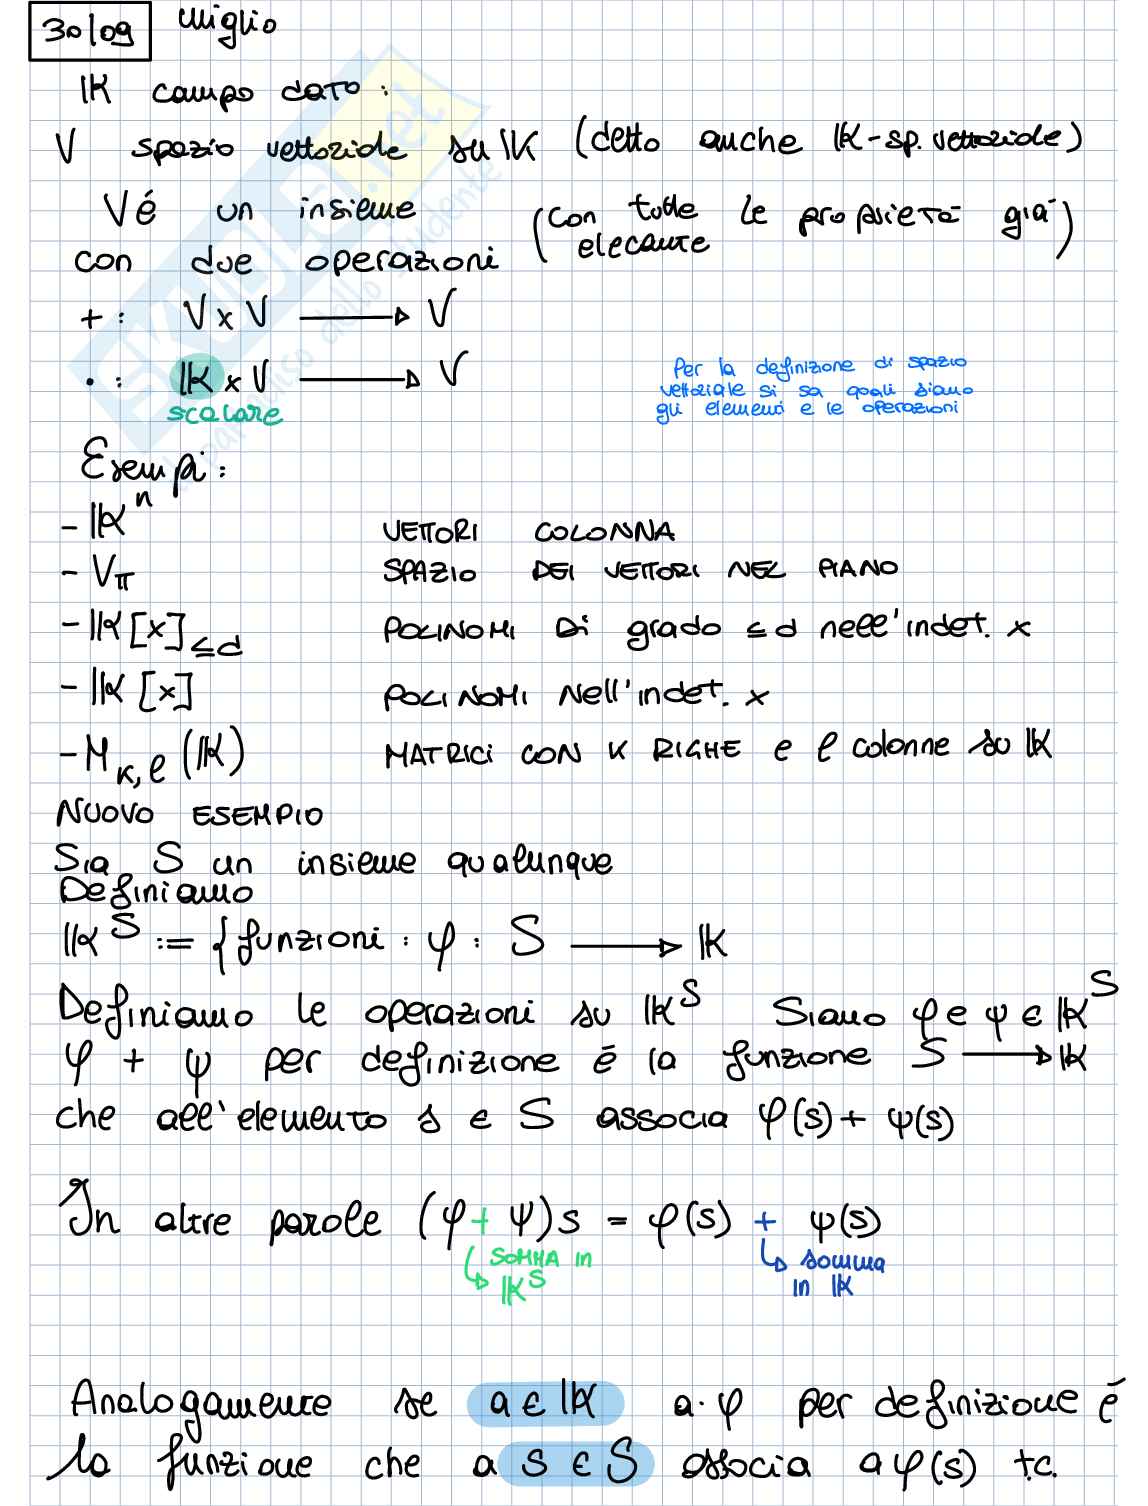 30/09 miglio
𝕂 campo dato :
V spazio vettoriale su 𝕂 (detto anche 𝕂-sp. vettoriale)
V é un insieme (con tutte le proprietà già
con due operazioni elencante)
+ : V x V → V
· : 𝕂 x V → V
scalare
Per la definizione di spazio
vettoriale si sa quali siano
gli elementi e le operazioni
Esempi :
- 𝕂ⁿ VETTORI COLONNA
- V_π SPAZIO DEI VETTORI NEL PIANO
- 𝕂[x]_≤d POLINOMI Di grado ≤ d nell'indet. x
- 𝕂[x] POLINOMI Nell'indet. x
- M_K,ℓ (𝕂) MATRICI CON K RIGHE e ℓ colonne su 𝕂
NUOVO ESEMPIO
Sia S un insieme qualunque
Definiamo
𝕂^S := { funzioni : φ : S → 𝕂
Definiamo le operazioni su 𝕂^S Siano φ e ψ ∈ 𝕂^S
φ + ψ per definizione é la funzione S → 𝕂
che all'elemento s ∈ S associa φ(s) + ψ(s)
In altre parole (φ + ψ)s = φ(s) + ψ(s)
↳ SOMMA in 𝕂^S
↳ somma in 𝕂
Analogamente se a ∈ 𝕂 a·φ per definizione é
la funzione che a s ∈ S associa aφ(s) t.c.
SKUOLA.net